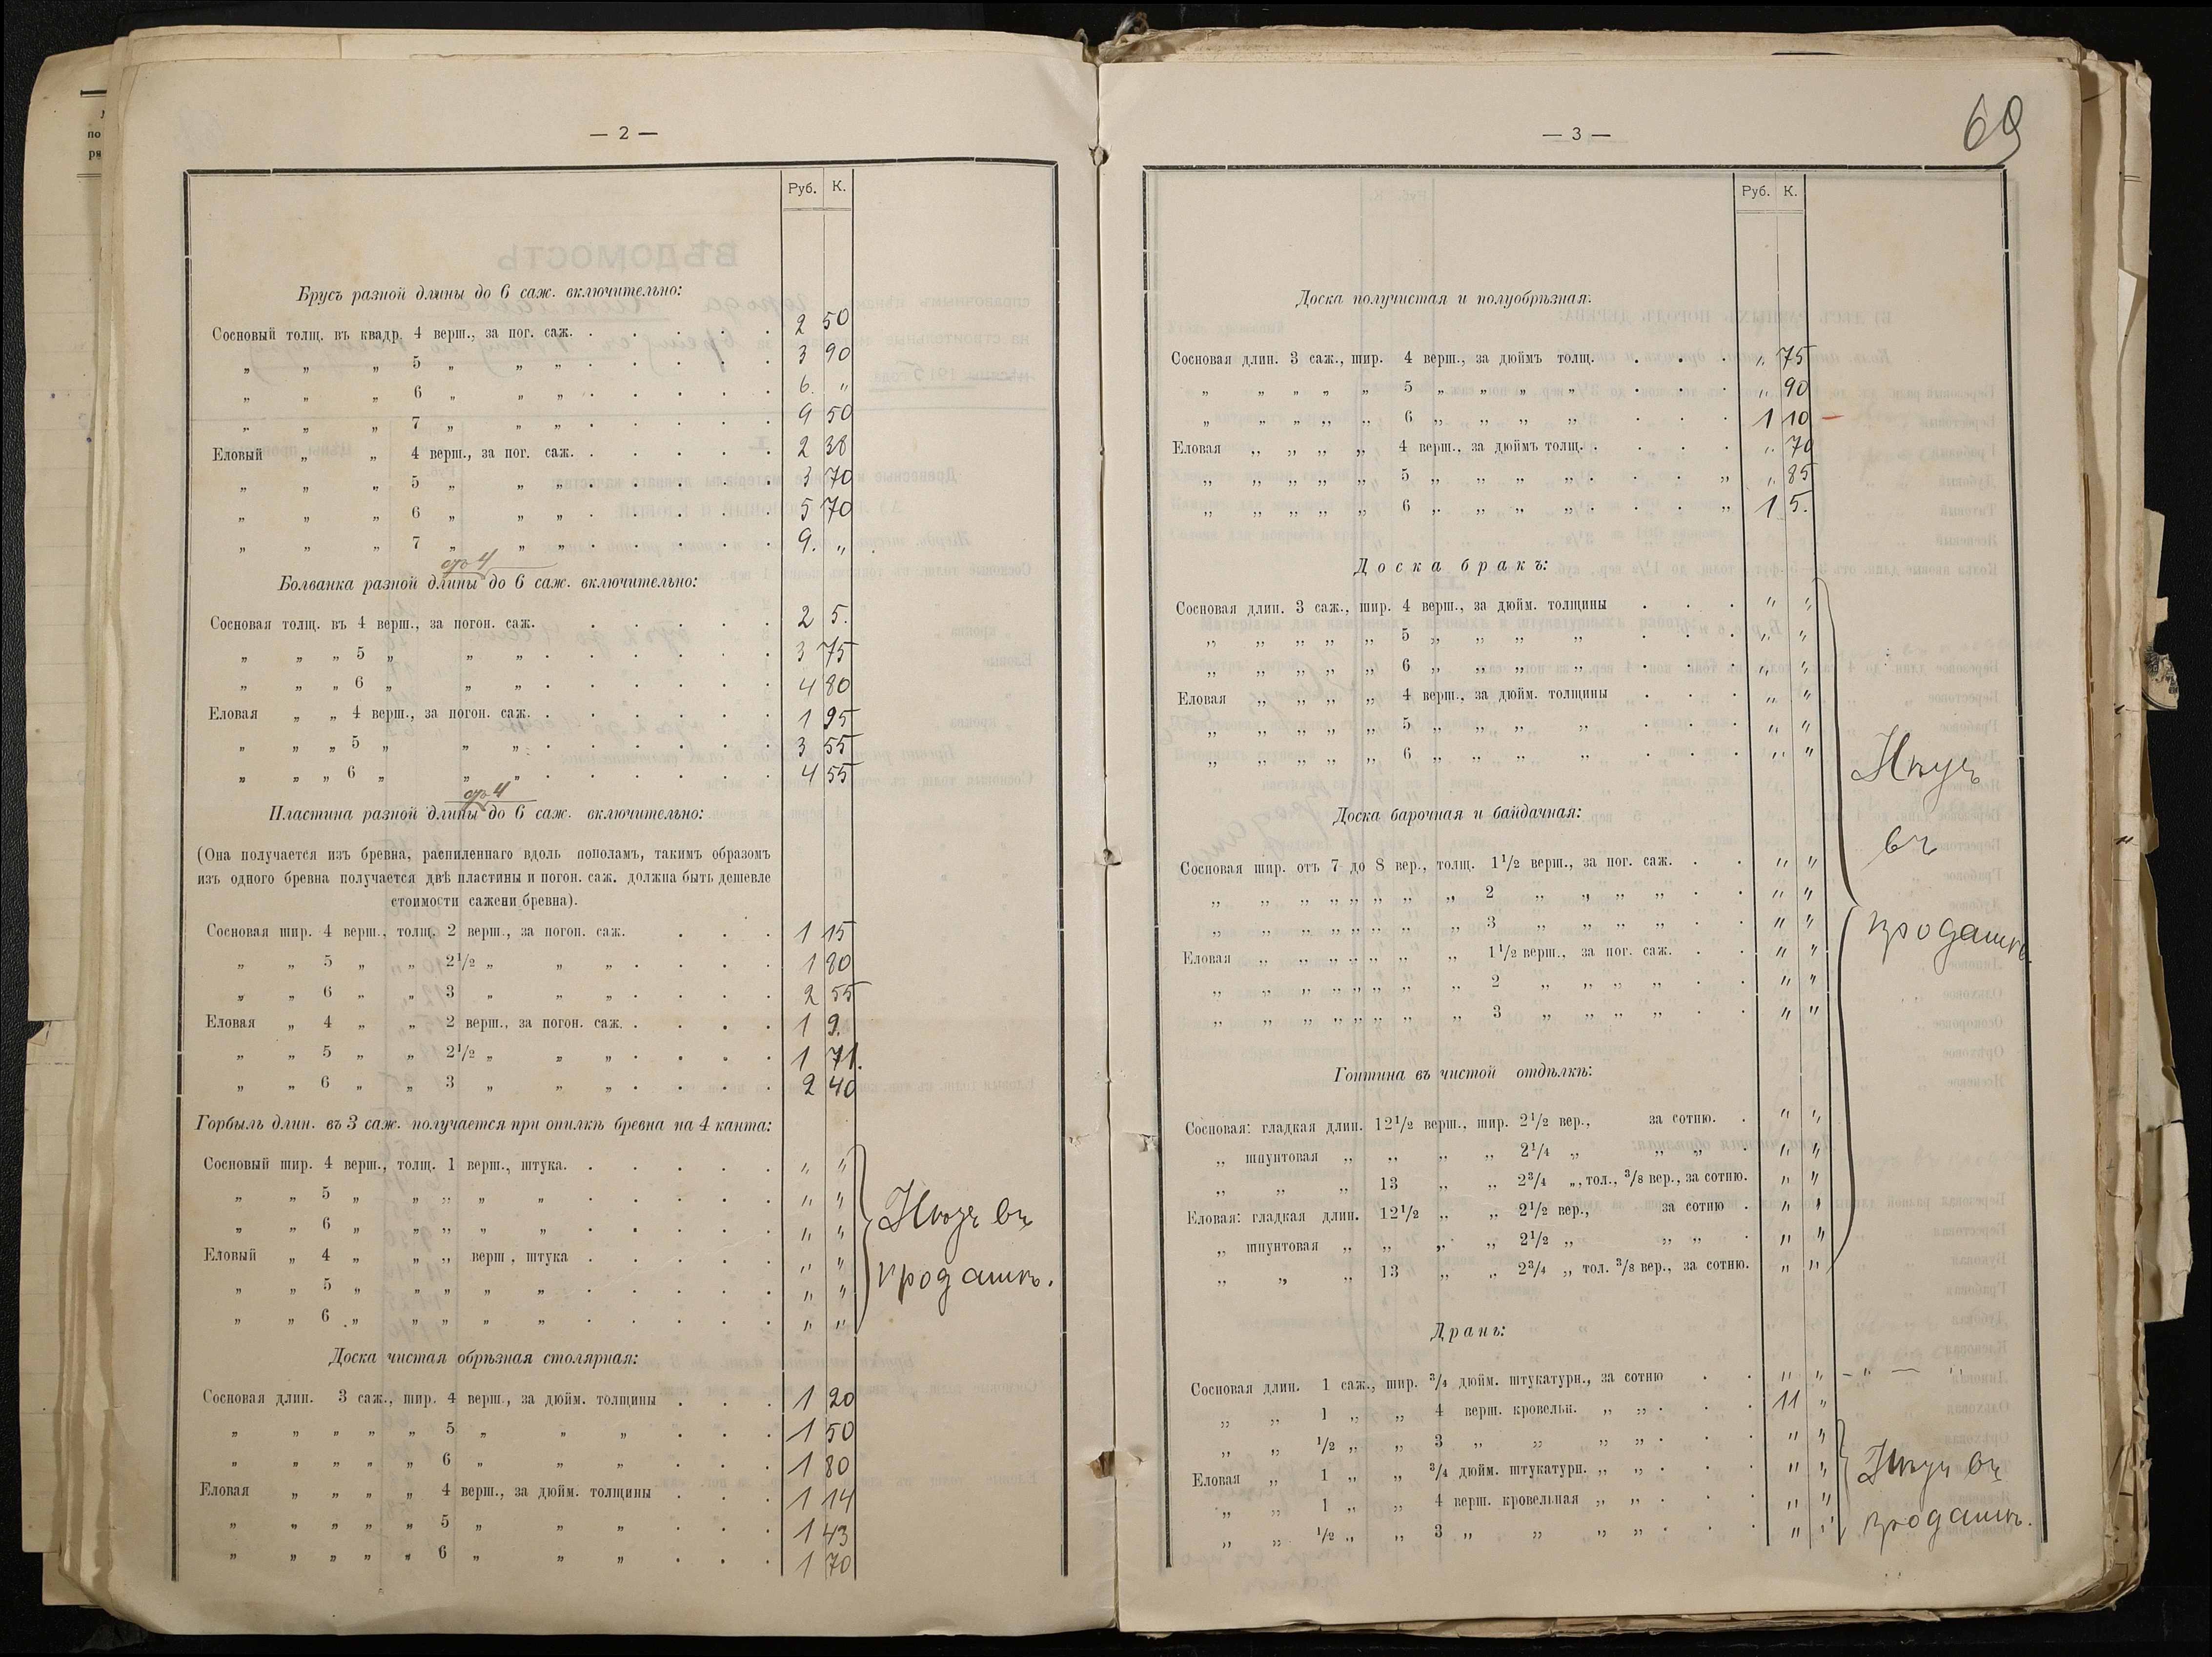 — 2 —
Руб. К.
Брусъ разной длины до 6 саж. включительно:
Сосновый толщ. въ квадр. 4 верш., за пог. саж. . . . . . . 2 50
„ „ „ 5 „ „ „ . . . . . . 3 90
„ „ „ 6 „ „ „ . . . . . . 6. „
„ „ „ 7 „ „ „ . . . . . . 9 50
Еловый „ „ 4 верш., за пог. саж. . . . . . . 2 38
„ „ „ 5 „ „ „ . . . . . . 3 70
„ „ „ 6 „ „ „ . . . . . . 5 70
„ „ „ 7 „ „ „ . . . . . . 9. „
до 4
Болванка разной длины до 6 саж. включительно:
Сосновая толщ. въ 4 верш., за погон. саж. . . . . . . 2 5.
„ „ „ 5 „ „ „ . . . . . . . 3 75
„ „ „ 6 „ „ „ . . . . . . . 4 80
Еловая „ „ 4 верш., за погон. саж. . . . . . . 1 95
„ „ „ 5 „ „ „ . . . . . . . 3 55
„ „ „ 6 „ „ „ . . . . . . . 4 55
до 4
Пластина разной длины до 6 саж. включительно:
(Она получается изъ бревна, распиленнаго вдоль пополамъ, такимъ образомъ
изъ одного бревна получается двѣ пластины и погон. саж. должна быть дешевле
стоимости сажени бревна).
Сосновая шир. 4 верш., толщ. 2 верш., за погон. саж. . . . 1 15
„ „ 5 „ „ 2 1/2 „ „ „ . . . . 1 80
„ „ 6 „ „ 3 „ „ „ . . . . 2 55
Еловая „ 4 „ „ 2 верш., за погон. саж. . . . . 1 9.
„ „ 5 „ „ 2 1/2 „ „ „ . . . . 1 71.
„ „ 6 „ „ 3 „ „ „ . . . . 2 40
Горбыль длин. въ 3 саж. получается при опилкѣ бревна на 4 канта:
Сосновый шир. 4 верш., толщ. 1 верш., штука. . . . . . „ „
„ „ 5 „ „ „ „ „ . . . . . „ „
„ „ 6 „ „ „ „ „ . . . . . „ „
Еловый „ 4 „ „ „ верш., штука . . . . . „ „
„ „ 5 „ „ „ „ „ . . . . . „ „
„ „ 6 „ „ „ „ „ . . . . . „ „
Нѣтъ въ
продажѣ.
Доска чистая обрѣзная столярная:
Сосновая длин. 3 саж., шир. 4 верш., за дюйм. толщины . . . 1 20
„ „ „ „ „ 5 „ „ „ . . . 1 50
„ „ „ „ „ 6 „ „ „ . . . 1 80
Еловая „ „ „ „ 4 верш., за дюйм. толщины . . . 1 14
„ „ „ „ „ 5 „ „ „ . . . 1 43
„ „ „ „ „ 6 „ „ „ . . . 1 70
— 3 —
69
Руб. К.
Доска получистая и полуобрѣзная:
Сосновая длин. 3 саж., шир. 4 верш., за дюймъ толщ. . . . „ 75
„ „ „ „ „ 5 „ „ „ „ . . . „ 90
„ „ „ „ „ 6 „ „ „ „ . . . 1 10 —
Еловая „ „ „ „ 4 верш., за дюймъ толщ. . . . . „ 70
„ „ „ „ „ 5 „ „ „ „ . . . „ „ 85
„ „ „ „ „ 6 „ „ „ „ . . . „ 1 5.
Доска бракъ:
Сосновая длин. 3 саж., шир. 4 верш., за дюйм. толщины . . . „ „
„ „ „ „ „ 5 „ „ „ „ . . . „ „
„ „ „ „ „ 6 „ „ „ „ . . . „ „
Еловая „ „ „ „ 4 верш., за дюйм. толщины . . . „ „
„ „ „ „ „ 5 „ „ „ „ . . . „ „
„ „ „ „ „ 6 „ „ „ „ . . . „ „
Доска барочная и байдачная:
Сосновая шир. отъ 7 до 8 вер., толщ. 1 1/2 верш., за пог. саж. . . „ „
„ „ „ „ „ „ „ „ 2 „ „ „ „ . . „ „
„ „ „ „ „ „ „ „ 3 „ „ „ „ . . „ „
Еловая „ „ „ „ „ „ „ 1 1/2 верш., за пог. саж. . . „ „
„ „ „ „ „ „ „ „ 2 „ „ „ „ . . „ „
„ „ „ „ „ „ „ „ 3 „ „ „ „ . . „ „
Гонтина въ чистой отдѣлкѣ:
Сосновая: гладкая длин. 12 1/2 верш., шир. 2 1/2 вер., за сотню. . „ „
„ шпунтовая „ „ „ „ 2 1/4 „ „ „ . „ „
„ „ „ 13 „ „ 2 3/4 „, тол., 3/8 вер., за сотню. „ „
Еловая: гладкая длин. 12 1/2 „ „ 2 1/2 вер., за сотню . „ „
„ шпунтовая „ „ „ „ 2 1/2 „ „ „ . „ „
„ „ „ 13 „ „ 2 3/4 „ тол. 3/8 вер., за сотню. „ „
Нѣтъ
въ
продажѣ.
Дрань:
Сосновая длин. 1 саж., шир. 3/4 дюйм. штукатурн., за сотню . . „ „ — „ — „
„ „ 1 „ „ 4 верш. кровельн. „ „ . . . 11 „
„ „ 1/2 „ „ 3 „ „ „ „ . . . „ „
Еловая „ 1 „ „ 3/4 дюйм. штукатурн. „ „ . . . „ „
„ „ 1 „ „ 4 верш. кровельная „ „ . . . „ „
„ „ 1/2 „ „ 3 „ „ „ „ . . . „ „
Нѣтъ въ
продажѣ.